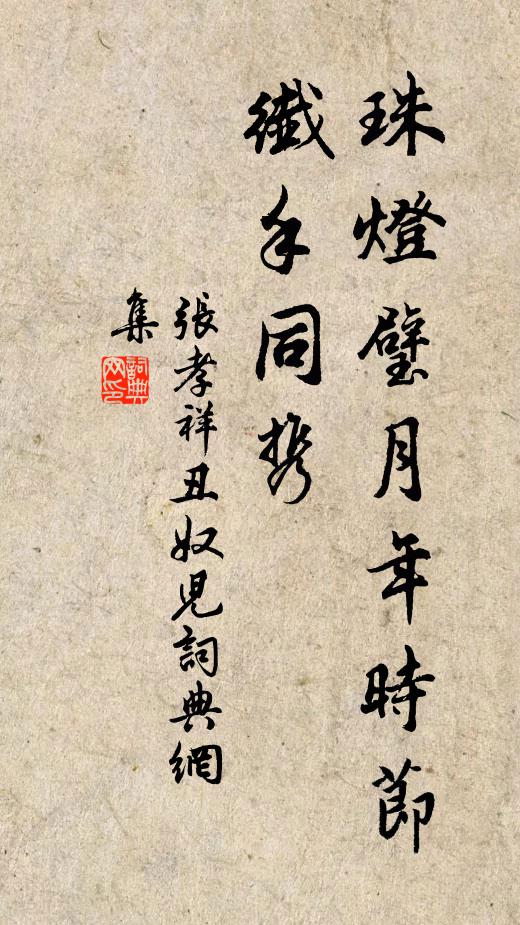 珠燈璧月年時節
纖手同携
張孝祥丑奴兒詞典網
集
詞典
网印